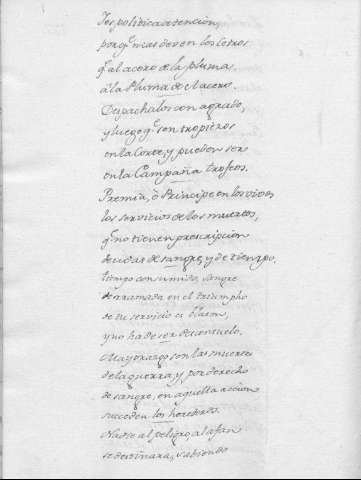 Yes politica atencion,
porq.e mas deven los Cetros
q.e al acero de la pluma,
a la Pluma de el acero.
Despachalos con agrado,
y luego q.e son tropiezos
en la Corte, y pueden ser
en la Campaña trofeos.
Premia, ò Principe en los vivos,
los servicios de los muertos,
q.e no tienen prescripcion
deudas de sangre, y de tiempo,
tiempo consumido, sangre
derramada, en el triumpho
de tu servicio es blason,
y no ha de ser desconsuelo.
Mayorazgo son las muertes
de la guerra, y por derecho
de sangre, en aquella accion
succeden los herederos.
Nadie al peligro, al afan
se destinàra, sabiendo